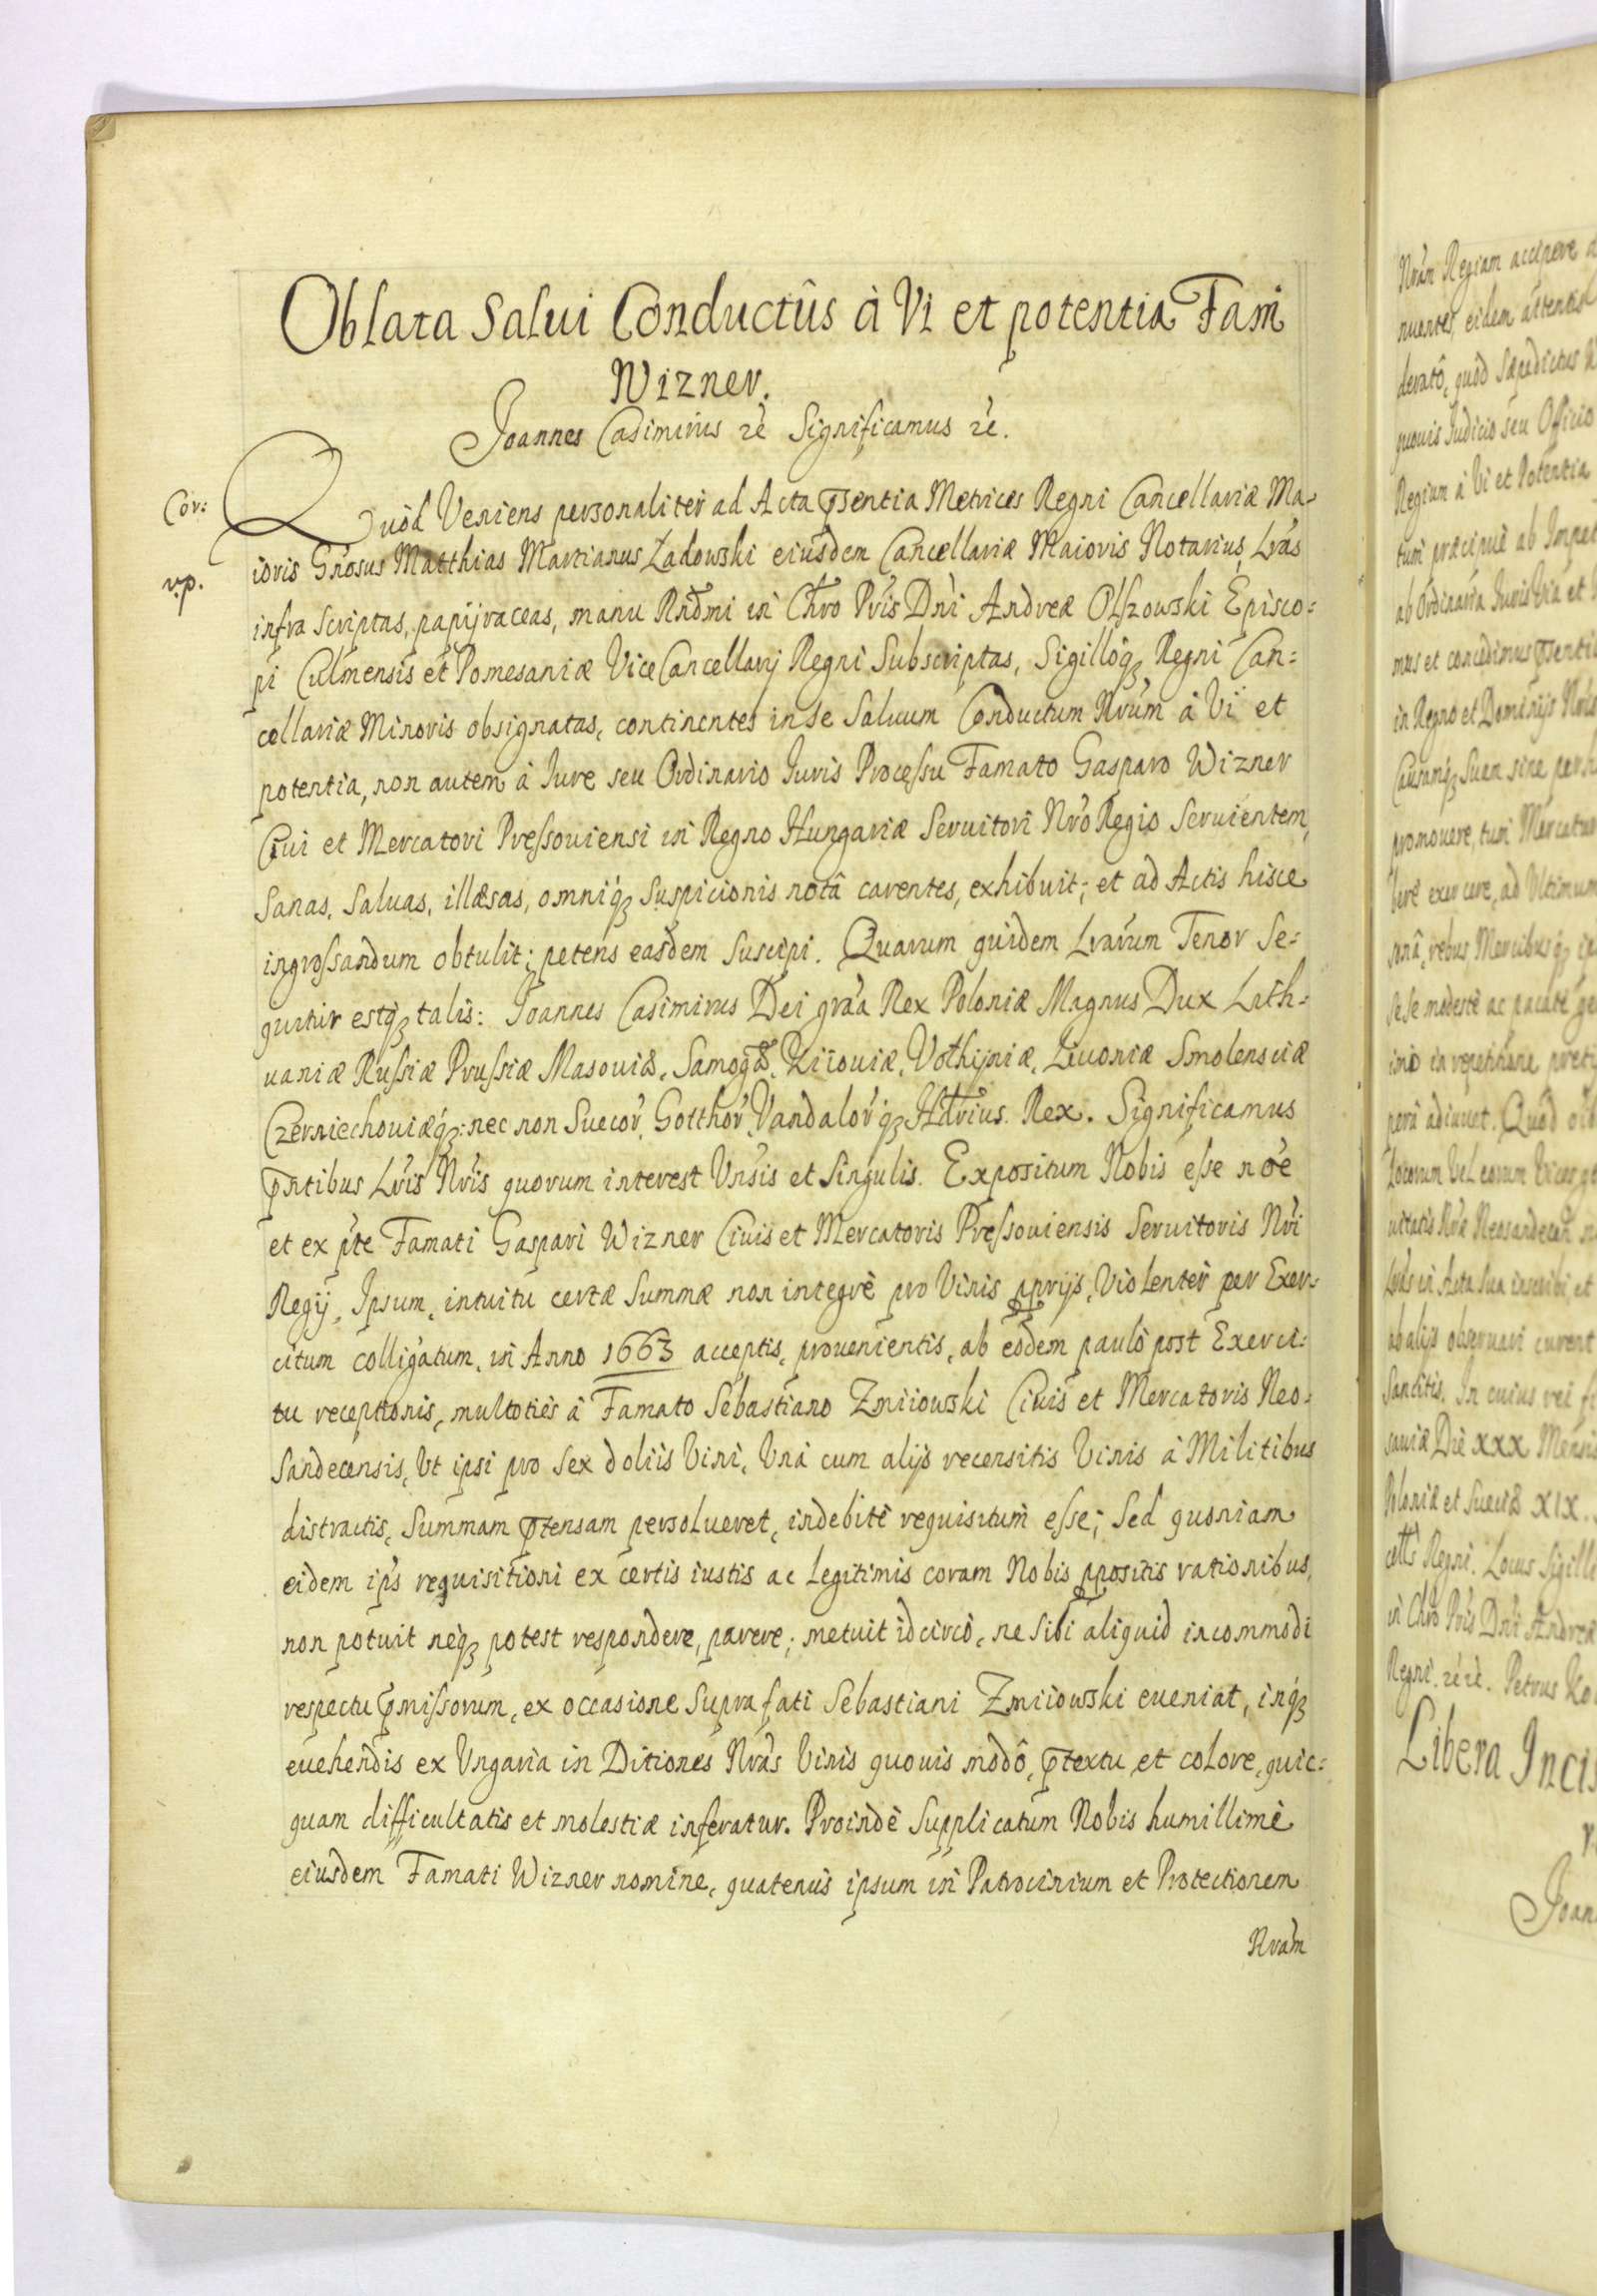 Oblata Salui Conductûs à Vi et potentia Fam̃
Wizner.
Joannes Casimirus rẻ Significamus rẻ.
Cor:
v.p.
Quod Veniens personaliter ad Acta p̃sentia Metrices Regni Cancellariæ Ma-
ioris Gñosus Matthias Martianus Ładowski eiusdem Cancellariæ Maioris Notarius, Lr̃as
infra scriptas, papyraceas, manu Rnd̃mi in Chr̃o Pr̃is Dñi Andreæ Olszowski Episco=
pi Culmensis et Pomesaniæ Vice Cancellarij Regni Subscriptas, Sigilloq; Regni Can=
cellariæ Minoris obsignatas, continentes in se Saluum Conductum Nr̃um à Vi et
potentia, non autem à Jure seu Ordinario Juris Processu Famato Gasparo Wizner
Ciui et Mercatori Pressouiensi in Regno Hungariæ Seruitori Nr̃o Regio Seruientem,
Sanas, Saluas, illæsas, omniq; suspicionis notâ carentes, exhibuit; et ad Actis hisce
ingrossandum obtulit; petens easdem suscipi. Quarum quidem Lr̃arum Tenor Se=
quitur estq; talis: Joannes Casimirus Dei gr̃a Rex Poloniæ Magnus Dux Lith=
uaniæ Russiæ Prussiæ Masouiæ, Samog̃æ, Kiiouiæ, Volhyniæ, Liuoniæ Smolensciæ
Czerniechouiæq; nec non Suecor̃, Gotthor̃, Vandalor̃q; Hær̃ius Rex. Significamus
p̃ntibus Lr̃is Nr̃is quorum interest Vnsis et singulis. Expositum Nobis esse nõe
et ex pt̃e Famati Gaspari Wizner Ciuis et Mercatoris Pressouiensis Seruitoris Nr̃i
Regij, Ipsum, intuitu certæ summæ non integrè pro Vinis pprijs, Violenter per Exer=
citum colligatum, in Anno 1663 acceptis, prouenientis, ab eodem paulò post Exerci=
tu receptionis, multoties à Famato Sebastiano Zmiiowski Ciuis et Mercatoris Neo=
Sandecensis, Vt ipsi pro sex doliis Vini, Vnà cum alijs recensitis Vinis à Militibus
distractis, Summam p̃tensam persolueret, indebitè requisitum esse; Sed quoniam
eidem ip̃s requisitioni ex certis iustis ac Legitimis coram Nobis ppositis rationibus,
non potuit neq; potest respondere, parere; metuit idcircò, ne sibi aliquid incommodi
respectu p̃missorum, ex occasione supra fati Sebastiani Zmiiowski eueniat, inq;
euehendis ex Vngaria in Ditiones Nr̃as Vinis quouis modô, p̃textu et colore, quic=
quam difficultatis et molestiæ inferatur. Proindè Supplicatum Nobis humillimè
eiusdem Famati Wizner nomine, quatenus ipsum in Patrocinium et Protectionem
Nr̃am
Nr̃am Regiam accipere
nuentes, eidem attentis
derato, quòd Sæpedictus
quouis Judicio seu Officio
Regium à Vi et Potentia
tum præcipuè ab Impet
ab Ordinaria Juris Via et
mus et concedimus p̃senti
in Regno et Dominijs Nr̃is
Causamq; Suam sine
promouere, tum Mercatur
berè exercere, ad Vltimum
sonâ, rebus Mercibusq;
sese modestè ac pacatè ge
imò in repetitione
adiuuet. Quod
Locorum Vel eorum Vices
uitatis Nr̃æ Neosandecen
Lr̃as in Acta sua inscribi, et
ab alijs obseruari curent
Sancitis. In cuius rei fi
sauiæ Die XXX Mensis
Poloniæ et Sueciæ XIX.
Regni. Locus Sigilli
in Chr̃o Pr̃is Dñi Andreæ
Regni. rẻrẻ. Petrus Ko
Libera Inci
Joan